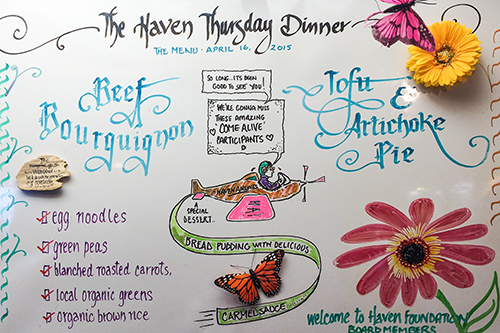 The Haven Thursday Dinner
THE MENU · APRIL 16, 2015
Beef
Bourguignon
SO LONG...IT'S BEEN
GOOD TO SEE YOU
WE'RE GONNA MISS
THESE AMAZING
'COME ALIVE'
PARTICIPANTS
Tofu
&
Artichoke
Pie
egg noodles
green peas
blanched roasted carrots,
local organic greens
organic brown rice
A
SPECIAL
DESSERT..
BREAD PUDDING WITH DELICIOUS
CARMEL SAUCE
welcome to Haven FOUNDATION
BOARD MEMBERS